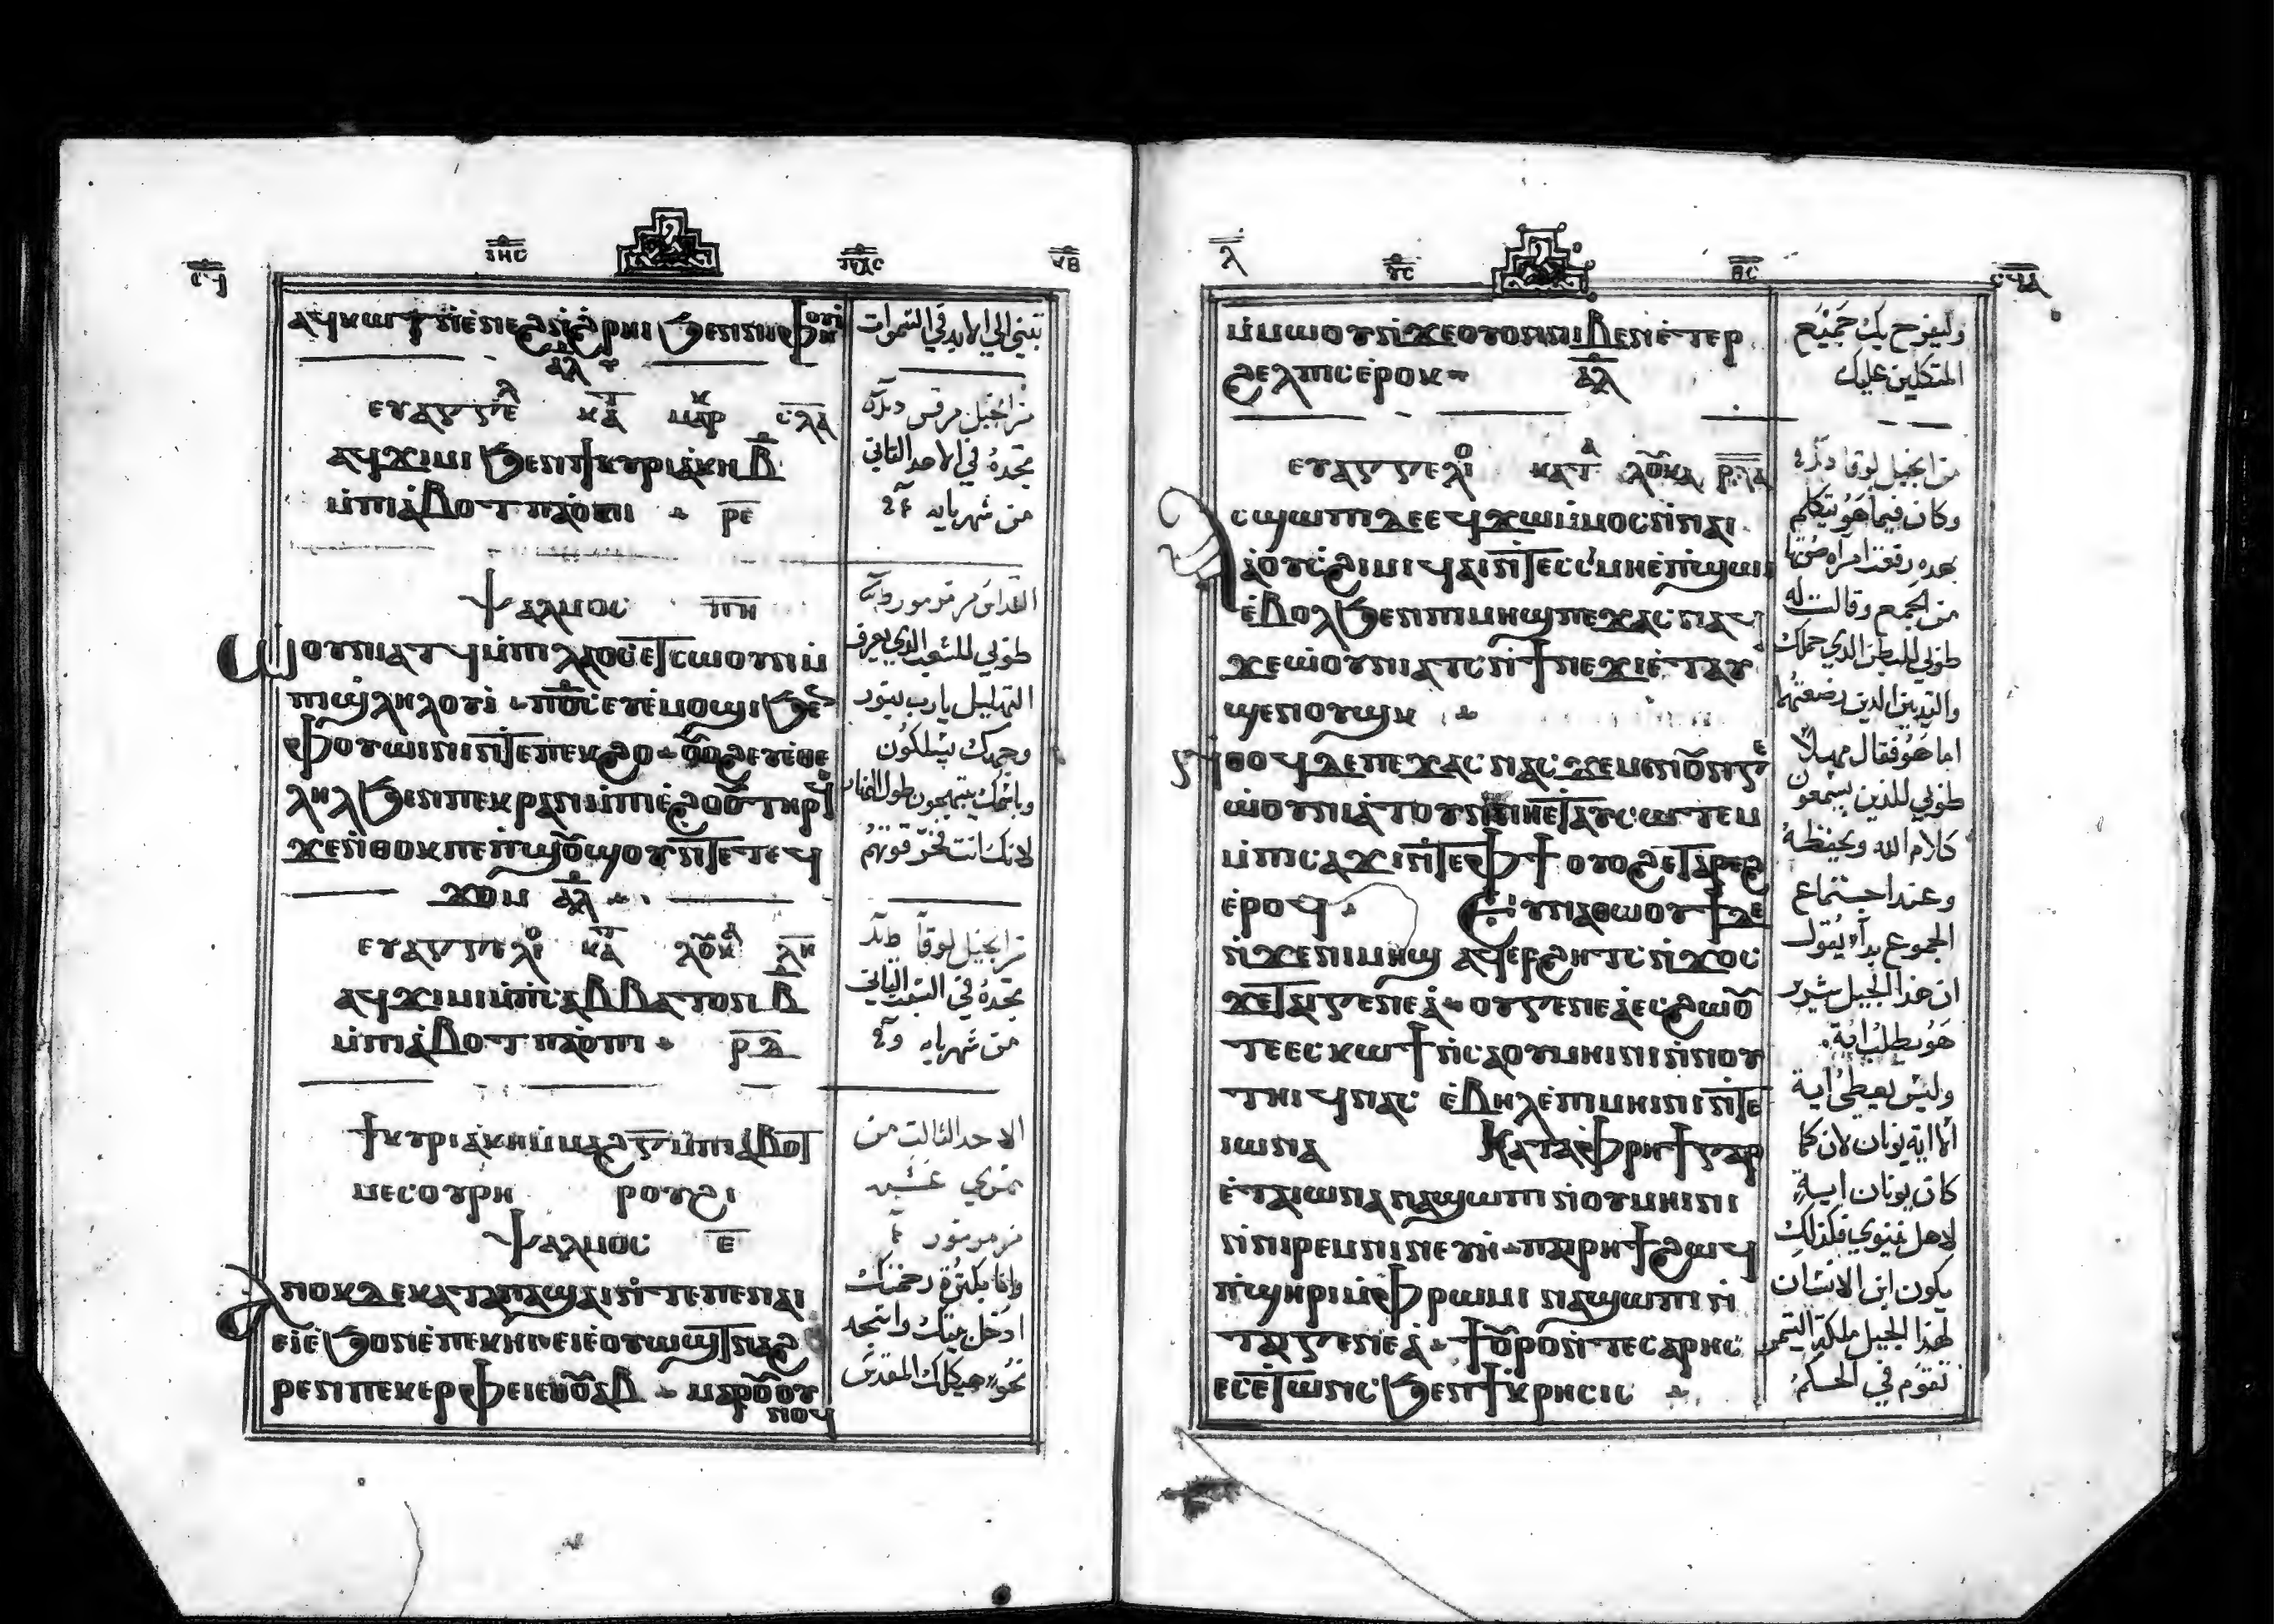 ⲓⲏⲥ ⲡⲭⲥ
ⲁϥⲕⲱϯⲛⲉⲛⲉϩⲛϩⲣⲏⲓϧⲉⲛⲛⲓⲫⲏⲟⲩⲓ
ⲁⲗ
ⲉⲩⲁⲅⲅⲉⲗ ⲕⲁⲧ ⲙⲁⲣⲕ ⲥⲗⲁ
ⲁϥϫⲓⲙⲓϧⲉⲛϯⲕⲩⲣⲓⲁⲕⲏⲃ
ⲙⲡⲓⲁⲃⲟⲧⲡⲁⲟⲡⲓ ⲣⲉ
ⲯⲁⲗⲙⲟⲥ ⲡⲏ
ⲱⲟⲩⲛⲓⲁⲧϥⲙⲡⲓⲗⲁⲟⲥⲉⲧⲥⲱⲟⲩⲛⲙ
ⲡⲓϣⲗⲏⲗⲟⲩⲓ ⲡⲟⲥⲉⲩⲉⲙⲟϣⲓϧⲉⲛ
ⲫⲟⲩⲱⲓⲛⲓⲛⲧⲉⲡⲉⲕϩⲟ ⲟⲩⲟϩⲉⲩⲉⲑⲉ
ⲗⲏⲗϧⲉⲛⲡⲉⲕⲣⲁⲛⲙⲡⲓⲉϩⲟⲟⲩⲧⲏⲣϥ
ϫⲉⲛⲑⲟⲕⲡⲉⲡϣⲟⲩϣⲟⲩⲛⲧⲉⲧⲉϥ
ϫⲟⲙ ⲁⲗ
ⲉⲩⲁⲅⲅⲉⲗⲓⲟ ⲕⲁⲧ ⲗⲟⲩⲕⲁ ⲗⲏ
ⲁϥϫⲓⲙⲓⲙⲡⲥⲁⲃⲃⲁⲧⲟⲛⲃ
ⲙⲡⲓⲁⲃⲟⲧⲡⲁⲟⲡⲓ ⲣⲇ
ϯⲕⲩⲣⲓⲁⲕⲏⲙⲙⲁϩⲅⲙⲡⲓⲁⲃⲟⲧ
ⲙⲉⲥⲟⲩⲣⲏ ⲣⲟⲩϩⲓ
ⲯⲁⲗⲙⲟⲥ ⲉ
ⲁⲛⲟⲕⲇⲉⲕⲁⲧⲁⲡⲁϣⲁⲓⲛⲧⲉⲡⲉⲛⲁⲓ
ⲉⲓⲉϧⲟⲩⲛⲉⲡⲉⲕⲏⲓⲉⲓⲉⲟⲩⲱϣⲧⲛⲁϩ
ⲣⲉⲛⲡⲉⲕⲉⲣⲫⲉⲓⲉⲑⲟⲩⲁⲃ ⲙⲁⲣⲟⲩⲟⲩ
ⲛⲟϥ
تبني الي الابد في السموات
من انجيل مرقس
تجده في الاحد الثاني
من شهر بابه
القداس مزمور
طوبي للشعب الذي يعرف
التهليل يارب بنور
وجهك يسلكون
وباسمك يبتهجون طول النهار
لانك انت فخر قوتهم
من انجيل لوقا
تجده في السبت الثاني
من شهر بابه
الاحد الثالث من
مسري عشيه
مزمور
وانا بكثرة رحمتك
ادخل بيتك واسجد
نحو هيكلك المقدس
ⲙⲙⲱⲟⲩⲛϫⲉⲟⲩⲟⲛⲛⲓⲃⲉⲛⲉⲧⲉⲣ
ϩⲉⲗⲡⲓⲥⲉⲣⲟⲕ ⲁⲗ
ⲉⲩⲁⲅⲅⲉⲗⲓⲟ ⲕⲁⲧⲁ ⲗⲟⲩⲕⲁ ⲣⲗⲁ
ⲁⲥϣⲱⲡⲓⲇⲉⲉϥϫⲱⲙⲙⲟⲥⲛⲛⲁⲓ
ⲁⲟⲩⲥϩⲓⲙⲓϥⲁⲓⲛⲧⲉⲥⲥⲙⲏⲉⲡϣⲱⲓ
ⲉⲃⲟⲗϧⲉⲛⲡⲓⲙⲏϣⲡⲉϫⲁⲥⲛⲁϥ
ϫⲉⲱⲟⲩⲛⲓⲁⲧⲥⲛϯⲛⲉϫⲓⲉⲧⲁⲩ
ϥⲉⲛⲟⲩϣⲕ
ⲛⲑⲟϥⲇⲉⲡⲉϫⲁϥⲛⲁⲥϫⲉⲙⲉⲛⲟⲩⲛⲅⲉ
ⲱⲟⲩⲛⲓⲁⲧⲟⲩⲛⲛⲏⲉⲧⲁⲩⲥⲱⲧⲉⲙ
ⲙⲡⲓⲥⲁϫⲓⲛⲧⲉⲫϯⲟⲩⲟϩⲉⲧⲁⲣⲉϩ
ⲉⲣⲟϥ ⲉⲩⲛⲁⲑⲱⲟⲩϯⲇⲉ
ⲛϫⲉⲛⲓⲙⲏϣ ⲁϥⲉⲣϩⲏⲧⲥⲛϫⲟⲥ
ϫⲉⲧⲁⲓⲅⲉⲛⲉⲁ ⲟⲩⲅⲉⲛⲉⲁⲉⲥϩⲱⲟⲩ
ⲧⲉⲉⲥⲕⲱϯⲛⲥⲁⲟⲩⲙⲏⲓⲛⲓⲛⲛⲟⲩ
ⲧⲏⲓϥⲛⲁⲥ ⲉⲃⲏⲗⲉⲡⲓⲙⲏⲓⲛⲓⲛⲧⲉ
ⲓⲱⲛⲁ ⲕⲁⲧⲁⲫⲣⲏϯⲅⲁⲣ
ⲉⲧⲁⲓⲱⲛⲁⲛⲁϣⲱⲡⲓⲛⲟⲩⲙⲏⲓⲛⲓ
ⲛⲛⲓⲣⲉⲙⲛⲓⲛⲉⲩⲏ ⲡⲁⲓⲣⲏϯϩⲱϥ
ⲡϣⲏⲣⲓⲙⲫⲣⲱⲙⲓ ⲛⲁϣⲱⲡⲓⲛ
ⲧⲁⲓⲅⲉⲛⲉⲁ ϯⲟⲩⲣⲟⲛⲧⲉⲥⲁⲣⲏⲥ
ⲉⲥⲉⲧⲱⲛⲥϧⲉⲛϯⲕⲣⲏⲥⲓⲥ
وليفرح بك جميع
المتكلين عليك
من انجيل لوقا
وكان فيما هو يتكلم
بهده رفعت امراه صوتها
من الجمع وقالت له
طوبي للبطن الذي حملك
والثديين الذين رضعتهما
اما هو فقال مهلا
طوبي للذين يسمعون
كلام الله ويحفظه
وعند اجتماع
الجموع بدا يقول
ان هذا الجيل شرير
هو يطلب اية
وليس يعطي اية
الا اية يونان لان كما
كان يونان اية
لاهل نينوي فكذلك
يكون ابن الانسان
لهذا الجيل ملكة التيمن
تقوم في الحكم